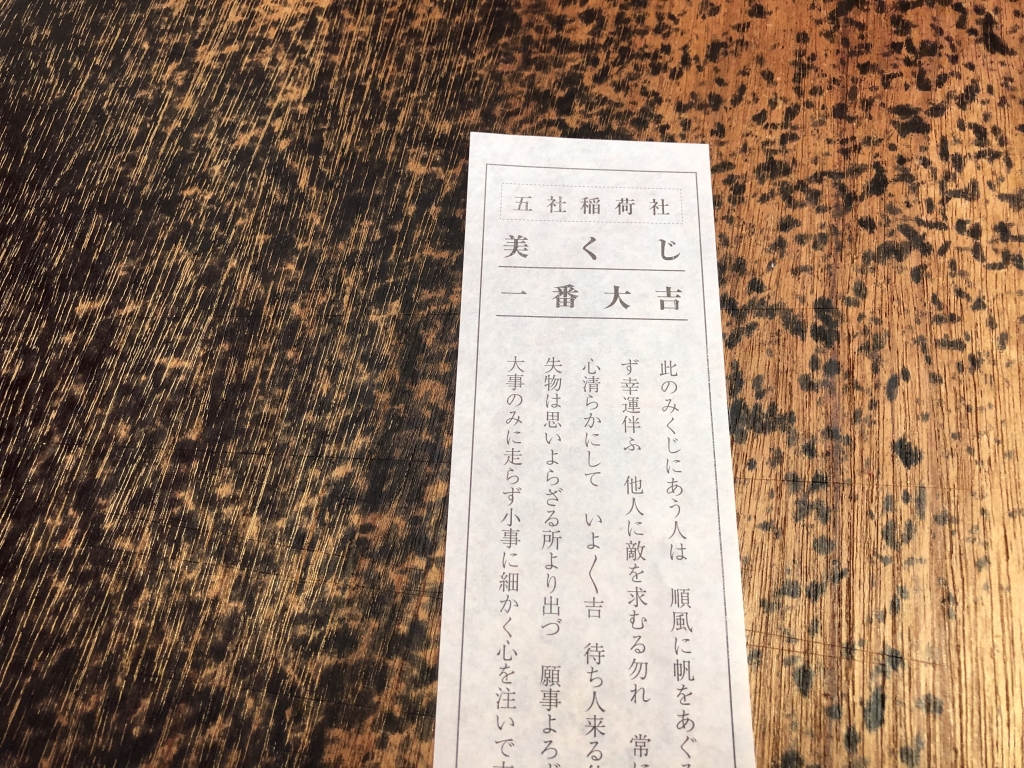 五社稲荷社
美くじ
一番大吉
此のみくじにあう人は 順風に帆をあぐ
ず幸運伴ふ 他人に敵を求むる勿れ 常に
心清らかにして いよ〳〵吉 待ち人来る
失物は思いよらざる所より出づ 願事よろ
大事のみに走らず小事に細かく心を注いで